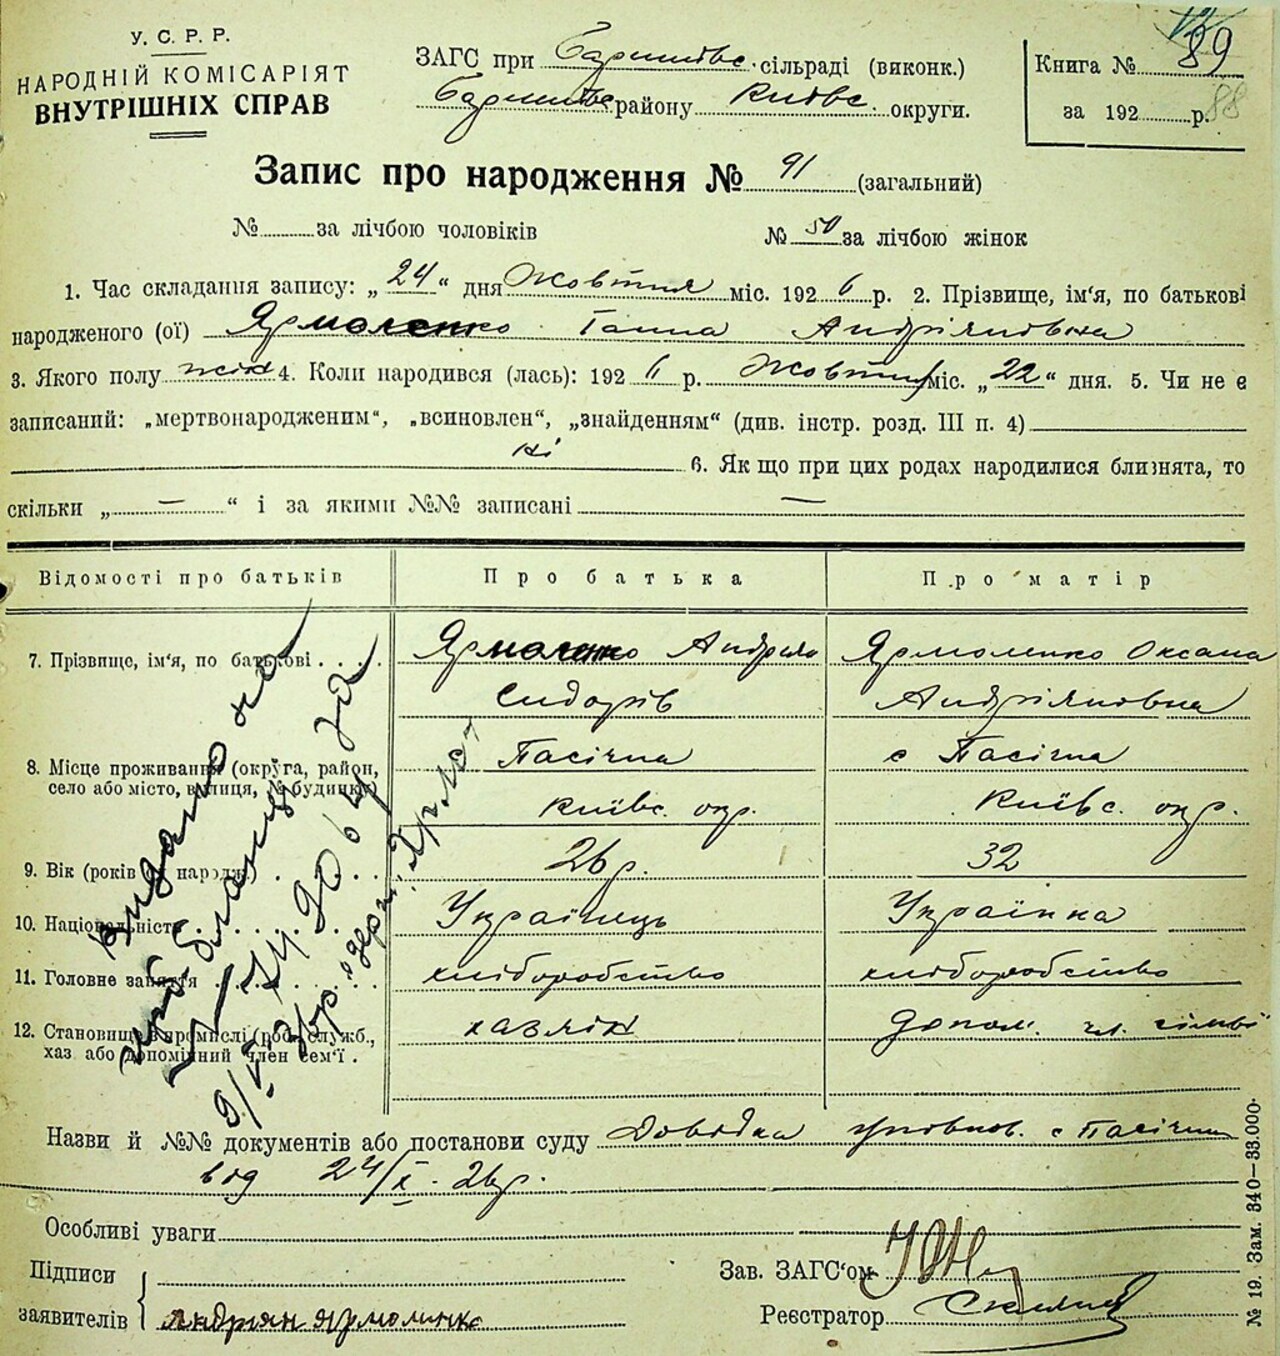 У. С. Р. Р.
НАРОДНІЙ КОМІСАРІЯТ
ВНУТРІШНІХ СПРАВ
ЗАГС при Баришівс. сільраді (виконк.)
Баришівс району Київс. округи.
Книга № 89
за 192 р. 88
Запис про народження № 91 (загальний)
№ за лічбою чоловіків № 50 за лічбою жінок
1. Час складання запису: „24“ дня Жовтня міс. 192 6 р. 2. Прізвище, ім'я, по батькові
народженого (ої) Ярмоленко Ганна Андріяновна
3. Якого полу жін 4. Коли народився (лась): 192 6 р. Жовтня міс. „22“ дня. 5. Чи не є
записаний: „мертвонародженим“, „всиновлен“, „знайденням“ (див. інстр. розд. III п. 4)
ні 6. Як що при цих родах народилися близнята, то
скільки „ — “ і за якими №№ записані —
Відомості про батьків Про батька Про матір
7. Прізвище, ім'я, по батькові . . . . Ярмоленко Андріян Ярмоленко Оксана
Сидорів Андріяновна
8. Місце проживання (округа, район, село або місто, вулиця, № будинку) Пасічна с Пасічна
Київс. окр. Київс. окр.
9. Вік (років від народж.) . . . 26 р. 32
10. Національність . . . Українець Українка
11. Головне заняття . . . хліборобство хліборобство
12. Становище в промислі (роб., служб., хаз або допомічний член сем'ї . хазяїн допом. чл. сімьї
Видано на
Назви й №№ документів або постанови суду Довідка уповнов. с Пасічна
від 24/X. 26 р.
Особливі уваги
Підписи
заявителів Андріян Ярмолинко
Зав. ЗАГС'ом
Реєстратор
№ 19. Зам. 340—33.000.